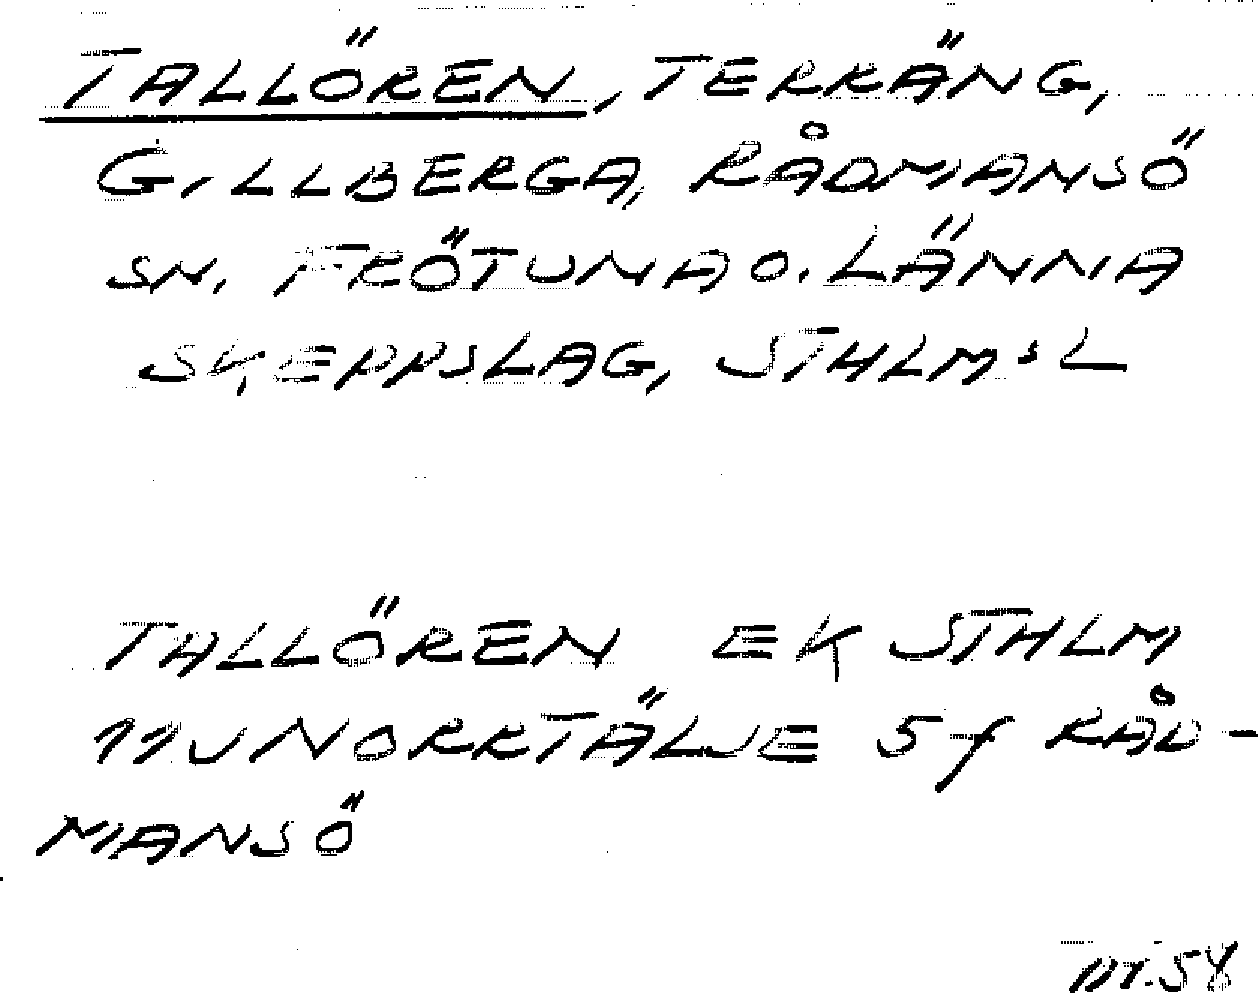 TALLÖREN, TERRÄNG,
GILLBERGA, RÅDMANSÖ
SN. FRÖTUNA O. LÄNNA
SKEPPSLAG, STHLMSL
TALLÖREN EK STHLM
11J NORRTÄLJE 5f RÅD-
MANSÖ